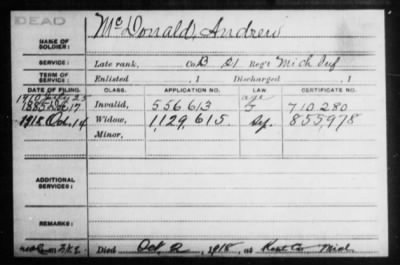 DEAD
NAME OF SOLDIER: McDonald, Andrew
SERVICE: Late rank, Co. B 21 Reg't Mich Inf
TERM OF SERVICE: Enlisted , 1 Discharged , 1
DATE OF FILING. CLASS. APPLICATION NO. LAW. CERTIFICATE NO.
1885 Invalid, 556613 710280
1918 Oct. 14 Widow, 1,129,615 855,978
Minor,
ADDITIONAL SERVICES:
REMARKS:
Died Oct. 2, 1918, at Kent Co Mich.